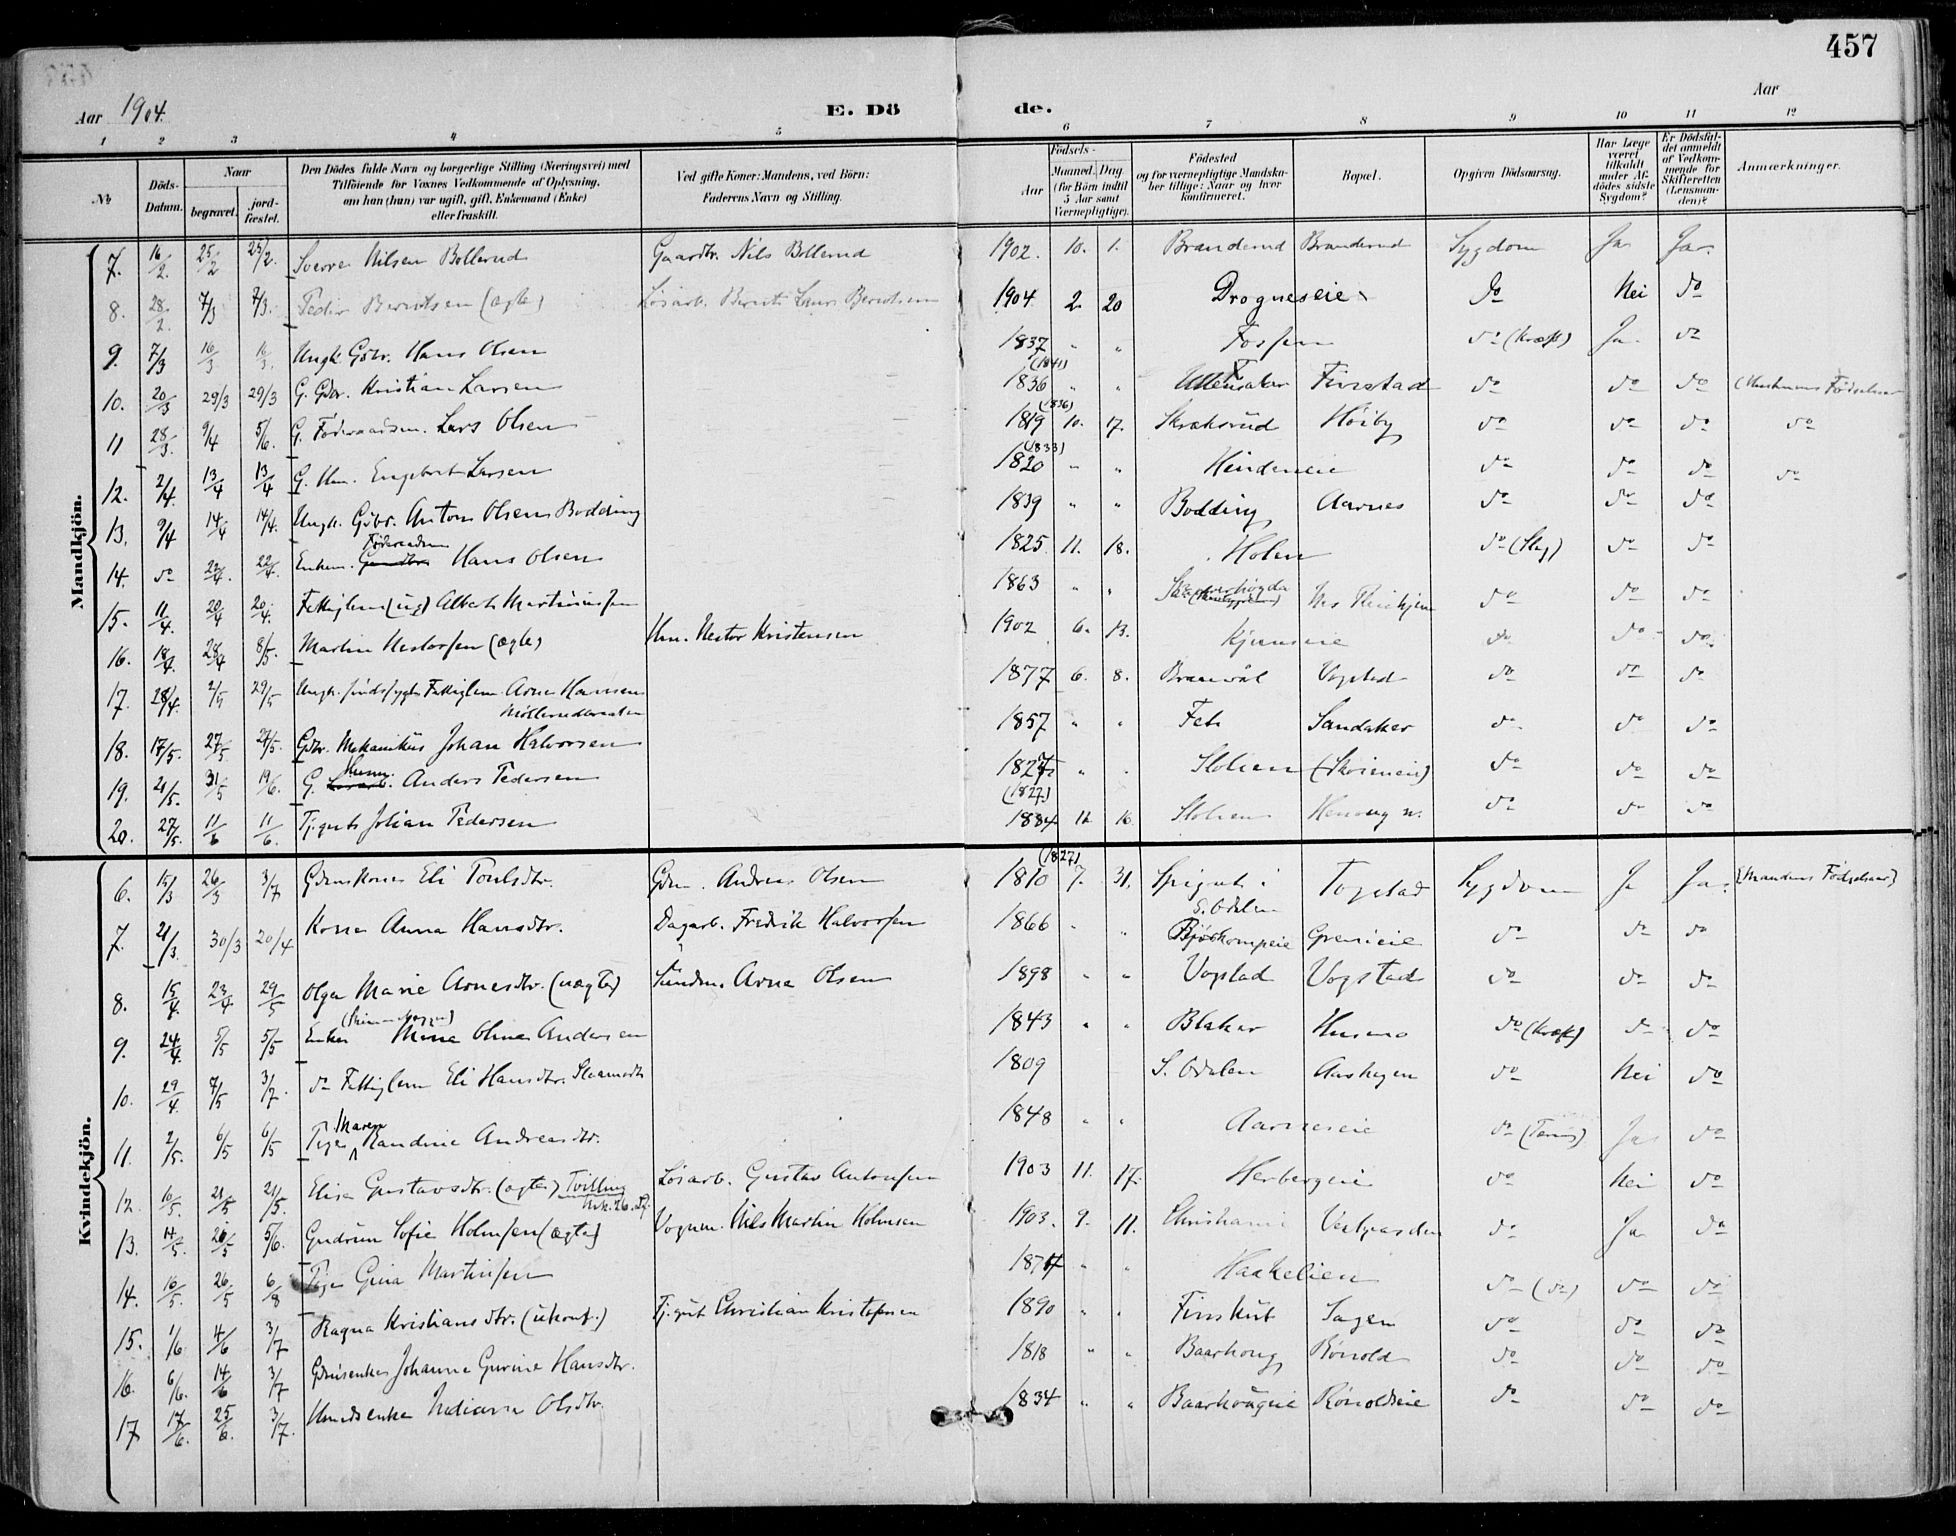 457
Aar 1904.
E. Dö de.
Aar
1 2 3 4 5 6 7 8 9 10 11 12
No
Döds-Datum.
Naar
begravet.
jord-fæstet.
Den Dödes fulde Navn og borgerlige Stilling (Næringsvei) med
Tilföiende for Voxnes Vedkommende af Oplysning,
om han (hun) var ugift, gift, Enkemand (Enke)
eller fraskilt.
Ved gifte Koner: Mandens, ved Börn:
Faderens Navn og Stilling.
Födsels-
Aar
Maaned. Dag
(for Börn indtil
5 Aar samt
Værnepligtige).
Födested
og for værnepligtige Mandska-
ber tillige: Naar og hvor
konfirmeret.
Bopæl.
Opgiven Dödsaarsag.
Har Læge
været
tilkaldt
under Af-
dødes sidste
Sygdom?
Er Dödsfal-
det anmeldt
af Vedkom-
mende for
Skifteretten
(Lensman-
den)?
Anmærkninger.
Mandkjön.
7. 16/2 25/2 25/2. Sverre Nilsen Bollerud Gaardbr. Nils Bollerud 1902. 10. 1. Branderud Branderud Sygdom Ja Ja.
8. 28/2. 7/3 7/3. Peder Berntsen (ægte) Løsarb. Bernt Laur. Berntsen 1904 2. 20 Drogneseie do Nei do
9. 7/3 16/3 16/3. Ungk. Gbr. Hans Olsen 1837 " " Fossum do (Kræft) Ja do
10. 20/3 29/3 29/3 G. Gbr. Kristian Larsen 1836 (1841) " " Ullensaker Finstad do do do
11 28/3. 9/4 5/6. G. Føderaadsm. Lars Olsen 1819 (1836) 10. 17. Skraksrud Høiby do do do do
12. 2/4 13/4 13/4 G. Hm. Engebret Larsen 1820 (1833) " " Hindeneie do do do do
13. 9/4 14/4 14/4. Ungk. Gbr. Anton Olsen Bodding 1839 " " Bodding Aarnes do do do
14. do 22/4. 22/4. Enkem. Føderaadsm Hans Olsen 1825 11. 18. Holen do (Slag) do do
15. 11/4. 20/4 20/4. Fattiglem (ug) Albert Martinussen 1863 " " do do do
16. 18/4. 28/4 8/5. Martin Nestorsen (ægte) Hm. Nestor Kristensen 1902 6. 13. do do do
17. 28/4. 2/5 29/5 Ungk. sindssygt Fattiglem Arne Hansen 1877 6. 8. Vogstad do do do
18. 17/5. 27/5 27/5. Gbr. Mekanikus Johan Halvorsen 1857 " " Fet Sandaker do do do
19. 21/5. 31/5 19/6. G. Husm. Anders Pedersen 1827 (1827) " " Stolsen do do do
20. 27/5. 11/6 11/6. Tj.gut Johan Pedersen 1884 12 16. Stolsen do do do
Kvindekjön.
6. 15/3 26/3 3/7 Gdmskone Eli Poulsdtr. Gdm. Andreas Olsen 1810 (1827) 7. 31. Spigset i S. Odalen Togstad Sygdom Ja Ja. (Mandens Fødselsaar)
7. 21/3. 30/3 20/4 Kone Anna Hansdtr. Dagarb. Fredrik Halvorsen 1866 " " do do do
8. 15/4. 23/4 29/5 Olga Marie Arnesdtr. (uægte) Arne Olsen 1898 " " Vogstad Vogstad do do do
9. 24/4. 5/5 5/5 Enke Mina Oline Andersen 1843 " " Blaker Husmo do (Kræft) do do
10. 29/4. 7/5 3/7. do Fattiglem Eli Hansdtr. 1809 S. Odalen Aashagen do Nei do
11. 2/5. 6/5 6/5 Pige Maren Randine Andreasdtr. 1848 " " Aarneseie do (Tæring) Ja do
12. 10/5. 21/5 21/5. Elise Gustavsdtr. (ægte) Tvilling Løsarb. Gustav Antonsen 1903 11. 17. Herbergeie do Nei do
13. 14/5. 26/5 5/6. Gudrun Sofie Holmsen (ægte) Vognm. Nils Martin Holmsen 1903. 9. 11. Christiania do Ja do
14. 16/5. 26/5 6/8 Pige Gina Martinsen " " Haakelien do (do) do do
15. 1/6 4/6 3/7 Ragna Kristiansdtr. (ukonf.) Tj.gut Christian Kristofersen 1890 " " Finskut Sagen do do do
16. 6/6. 14/6 3/7 Gdmsenke Johanne Gurine Hansdtr. 1818 " " Baarhoug Rønold do do do
17 17/6. 25/6. 3/7. Hmdsenke Indiana Olsdtr. 1834 " " Baarhougeie Rønoldeie do do do